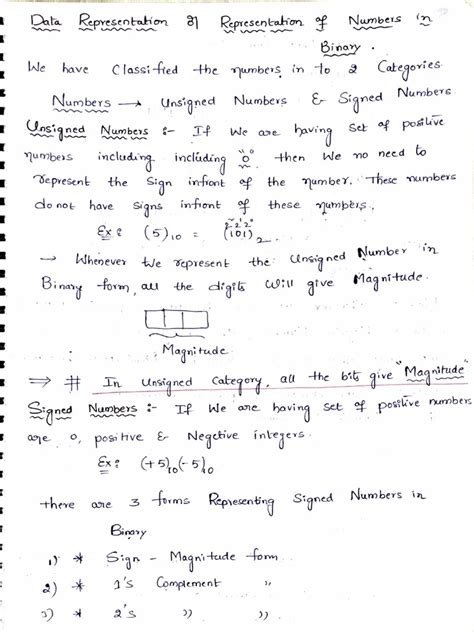 Data Representation or Representation of Numbers in
Binary.
We have Classified the numbers in to 2 Categories
Numbers → Unsigned Numbers & Signed Numbers
Unsigned Numbers :- If We are having Set of positive
numbers including including "0" then We no need to
represent the Sign infront of the number. These numbers
do not have Signs infront of these numbers.
Ex : (5)₁₀ = (101)₂
2² 2¹ 2⁰
→ Whenever We represent the Unsigned Number in
Binary form, all the digits Will give Magnitude.
Magnitude
⇒ # In Unsigned Category, all the bits give "Magnitude"
Signed Numbers :- If We are having Set of positive numbers
are 0, positive & Negctive integers.
Ex : (+5)₁₀ (-5)₁₀
there are 3 forms Representing Signed Numbers in
Binary
1) * Sign - Magnitude form
2) * 1's Complement "
3) * 2's " "